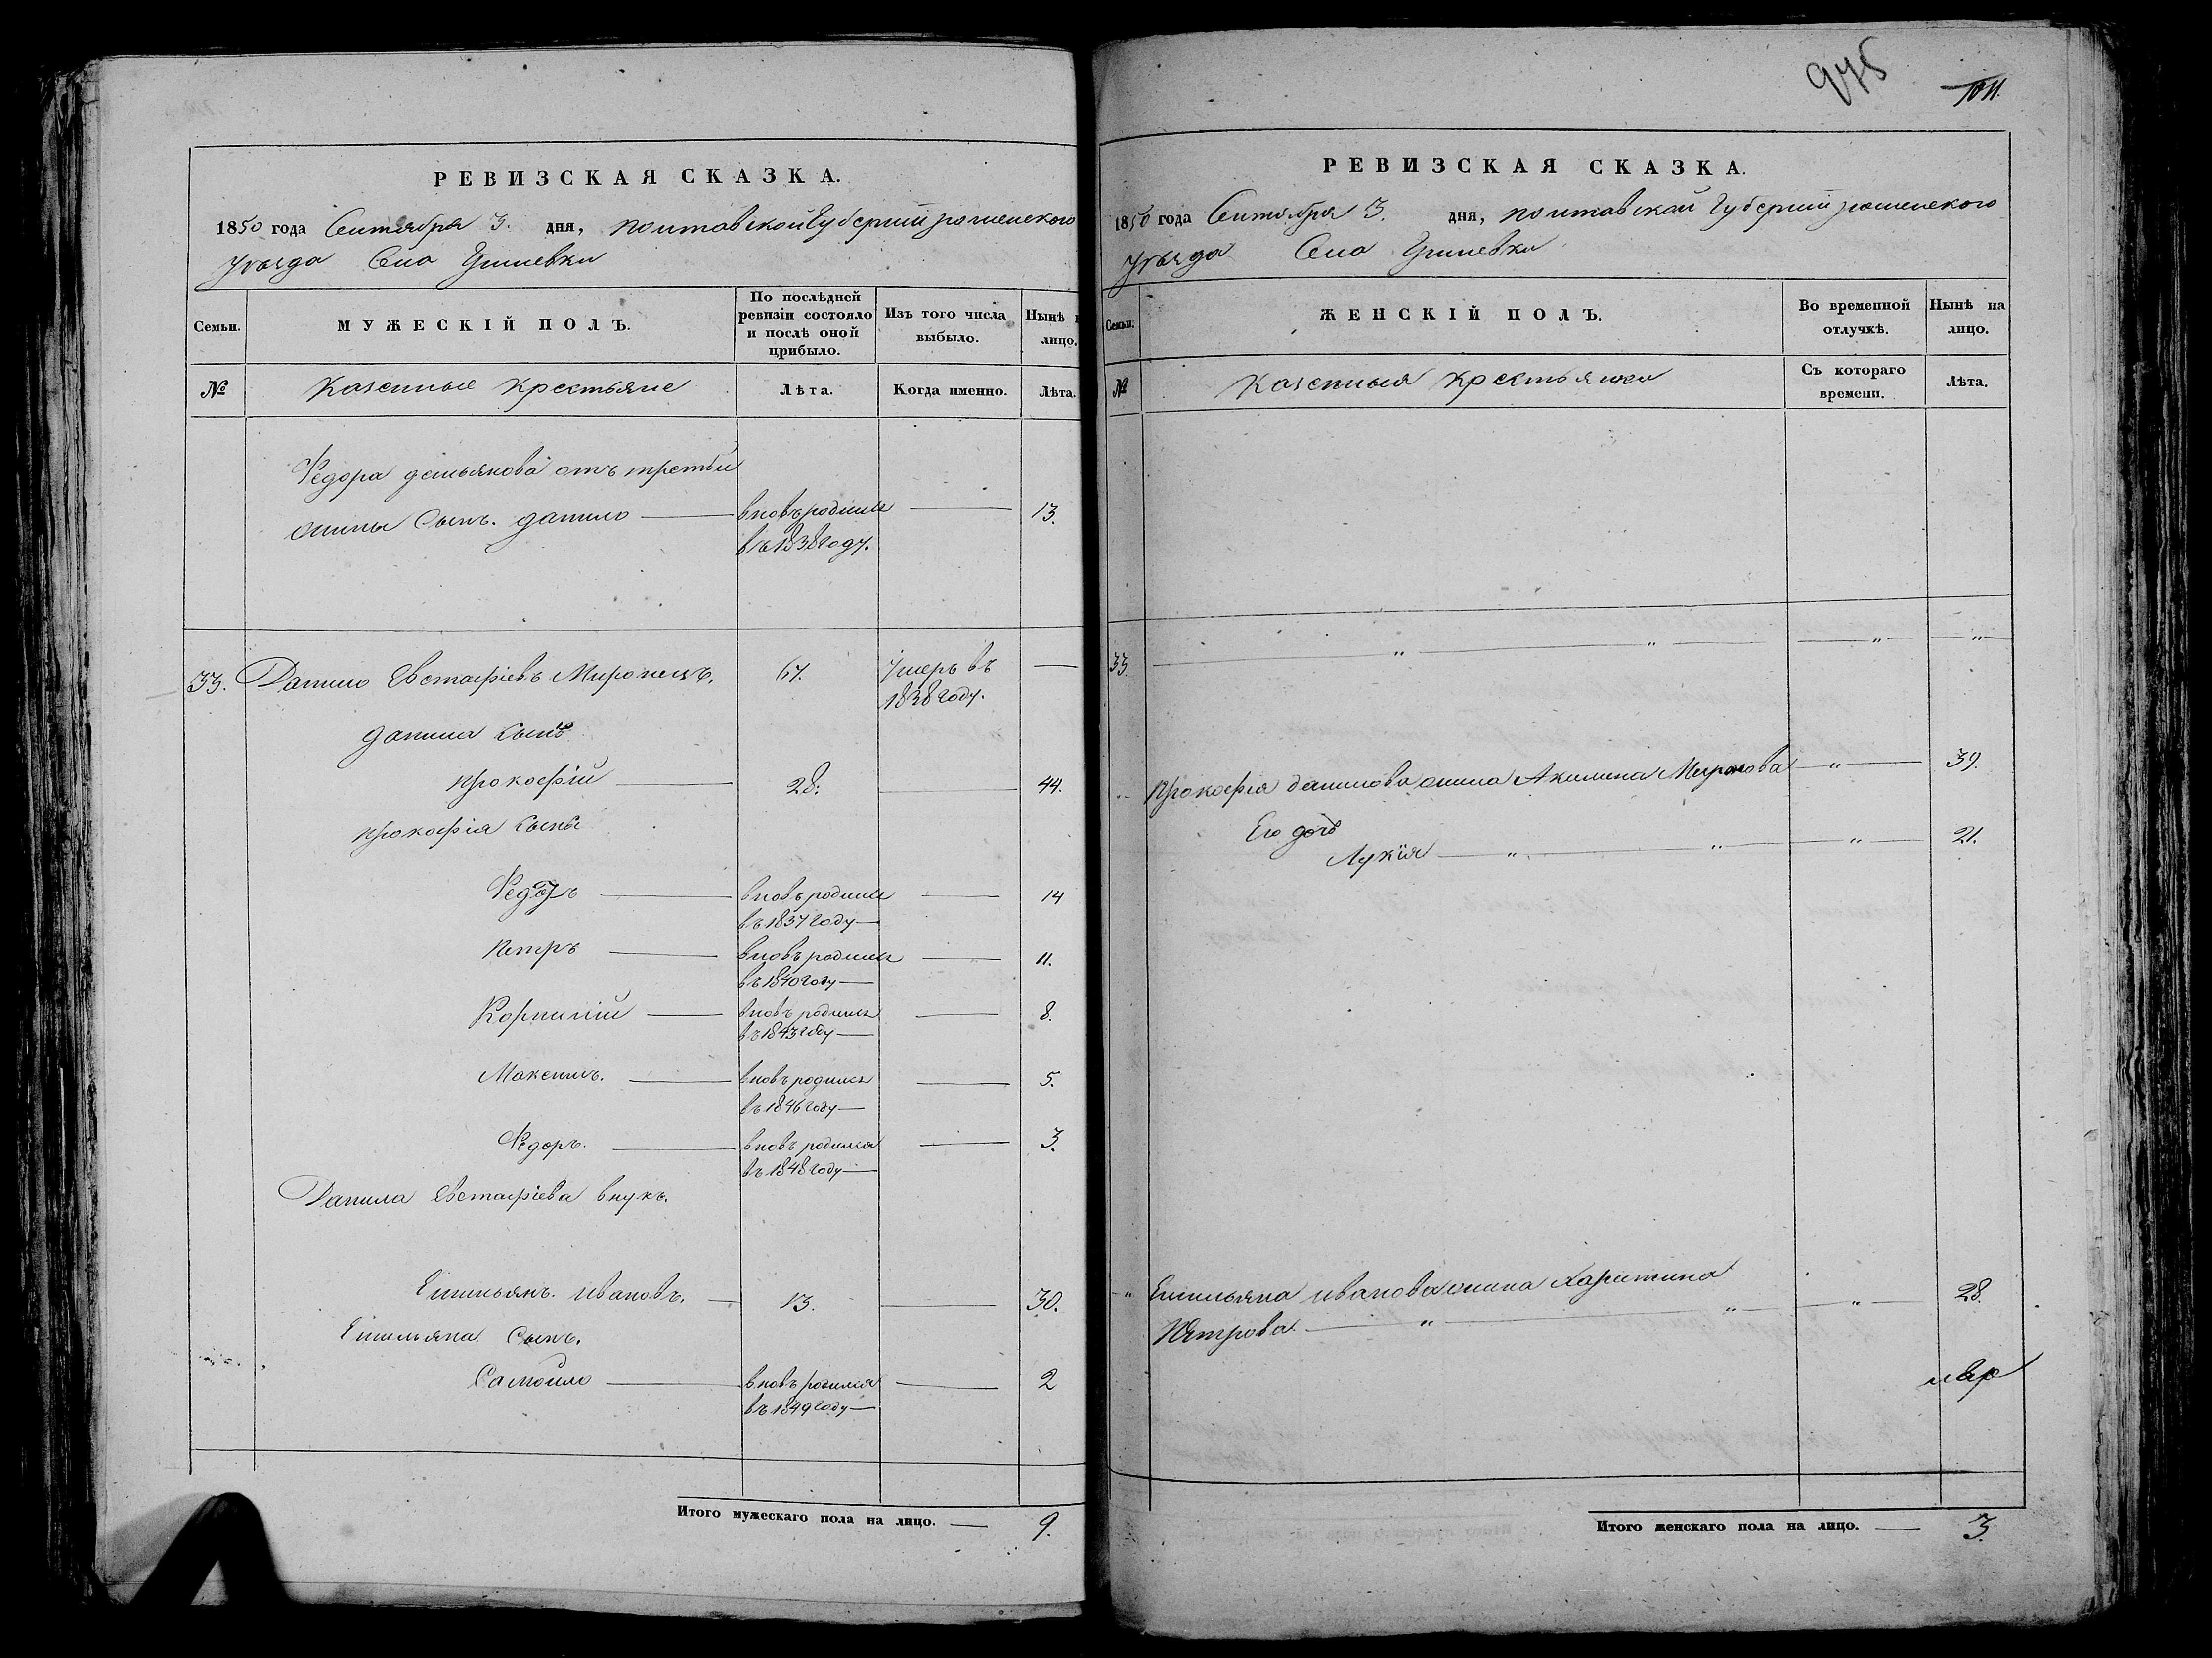 РЕВИЗСКАЯ СКАЗКА.
1850 года Сентября 3. дня, полтавской Губернии роменского
уѣзда Села Гриневки
Семьи.
МУЖЕСКІЙ ПОЛЪ.
По послѣдней
ревизіи состояло
и послѣ оной
прибыло.
Изъ того числа
выбыло.
Нынѣ
лицо.
№
Казенные крестьяне
Лѣта.
Когда именно.
Лѣта.
Федора демьянова отъ третьи
жены Сынъ. данило вновь родился 13.
въ 1838 году.
33. Данило Евстафіевъ Миронецъ. 67. Умеръ въ
1838 году.
данила сынъ
прокофій 28. 44.
прокофія сыны
Федоръ вновь родился 14
въ 1837 году
Петръ вновь родился 11.
въ 1840 году
Корнилій вновь родился 8.
въ 1843 году
Максимъ. вновь родился 5.
въ 1846 году
Федоръ. вновь родился 3.
въ 1848 году
Данила Евстафіева внукъ.
Емильянъ. ивановъ. 13. 30.
Емильяна Сынъ.
Самойло вновь родился 2
въ 1849 году
Итого мужескаго пола на лицо. 9.
975
1011.
РЕВИЗСКАЯ СКАЗКА.
1850 года Сентября 3. дня, полтавской Губернии роменского
уѣзда Села Гриневки
Семьи.
ЖЕНСКІЙ ПОЛЪ.
Во временной
отлучкѣ.
Нынѣ на
лицо.
№
Казенныя крестьянки
Съ котораго
времени.
Лѣта.
33. " " " "
" Прокофія данилова жена Акилина Миронова " 39.
Его дочь
Лукія " " " 21.
" Емильяна иванова жена Харитина
Петрова " " " 28.
Итого женскаго пола на лицо. 3.